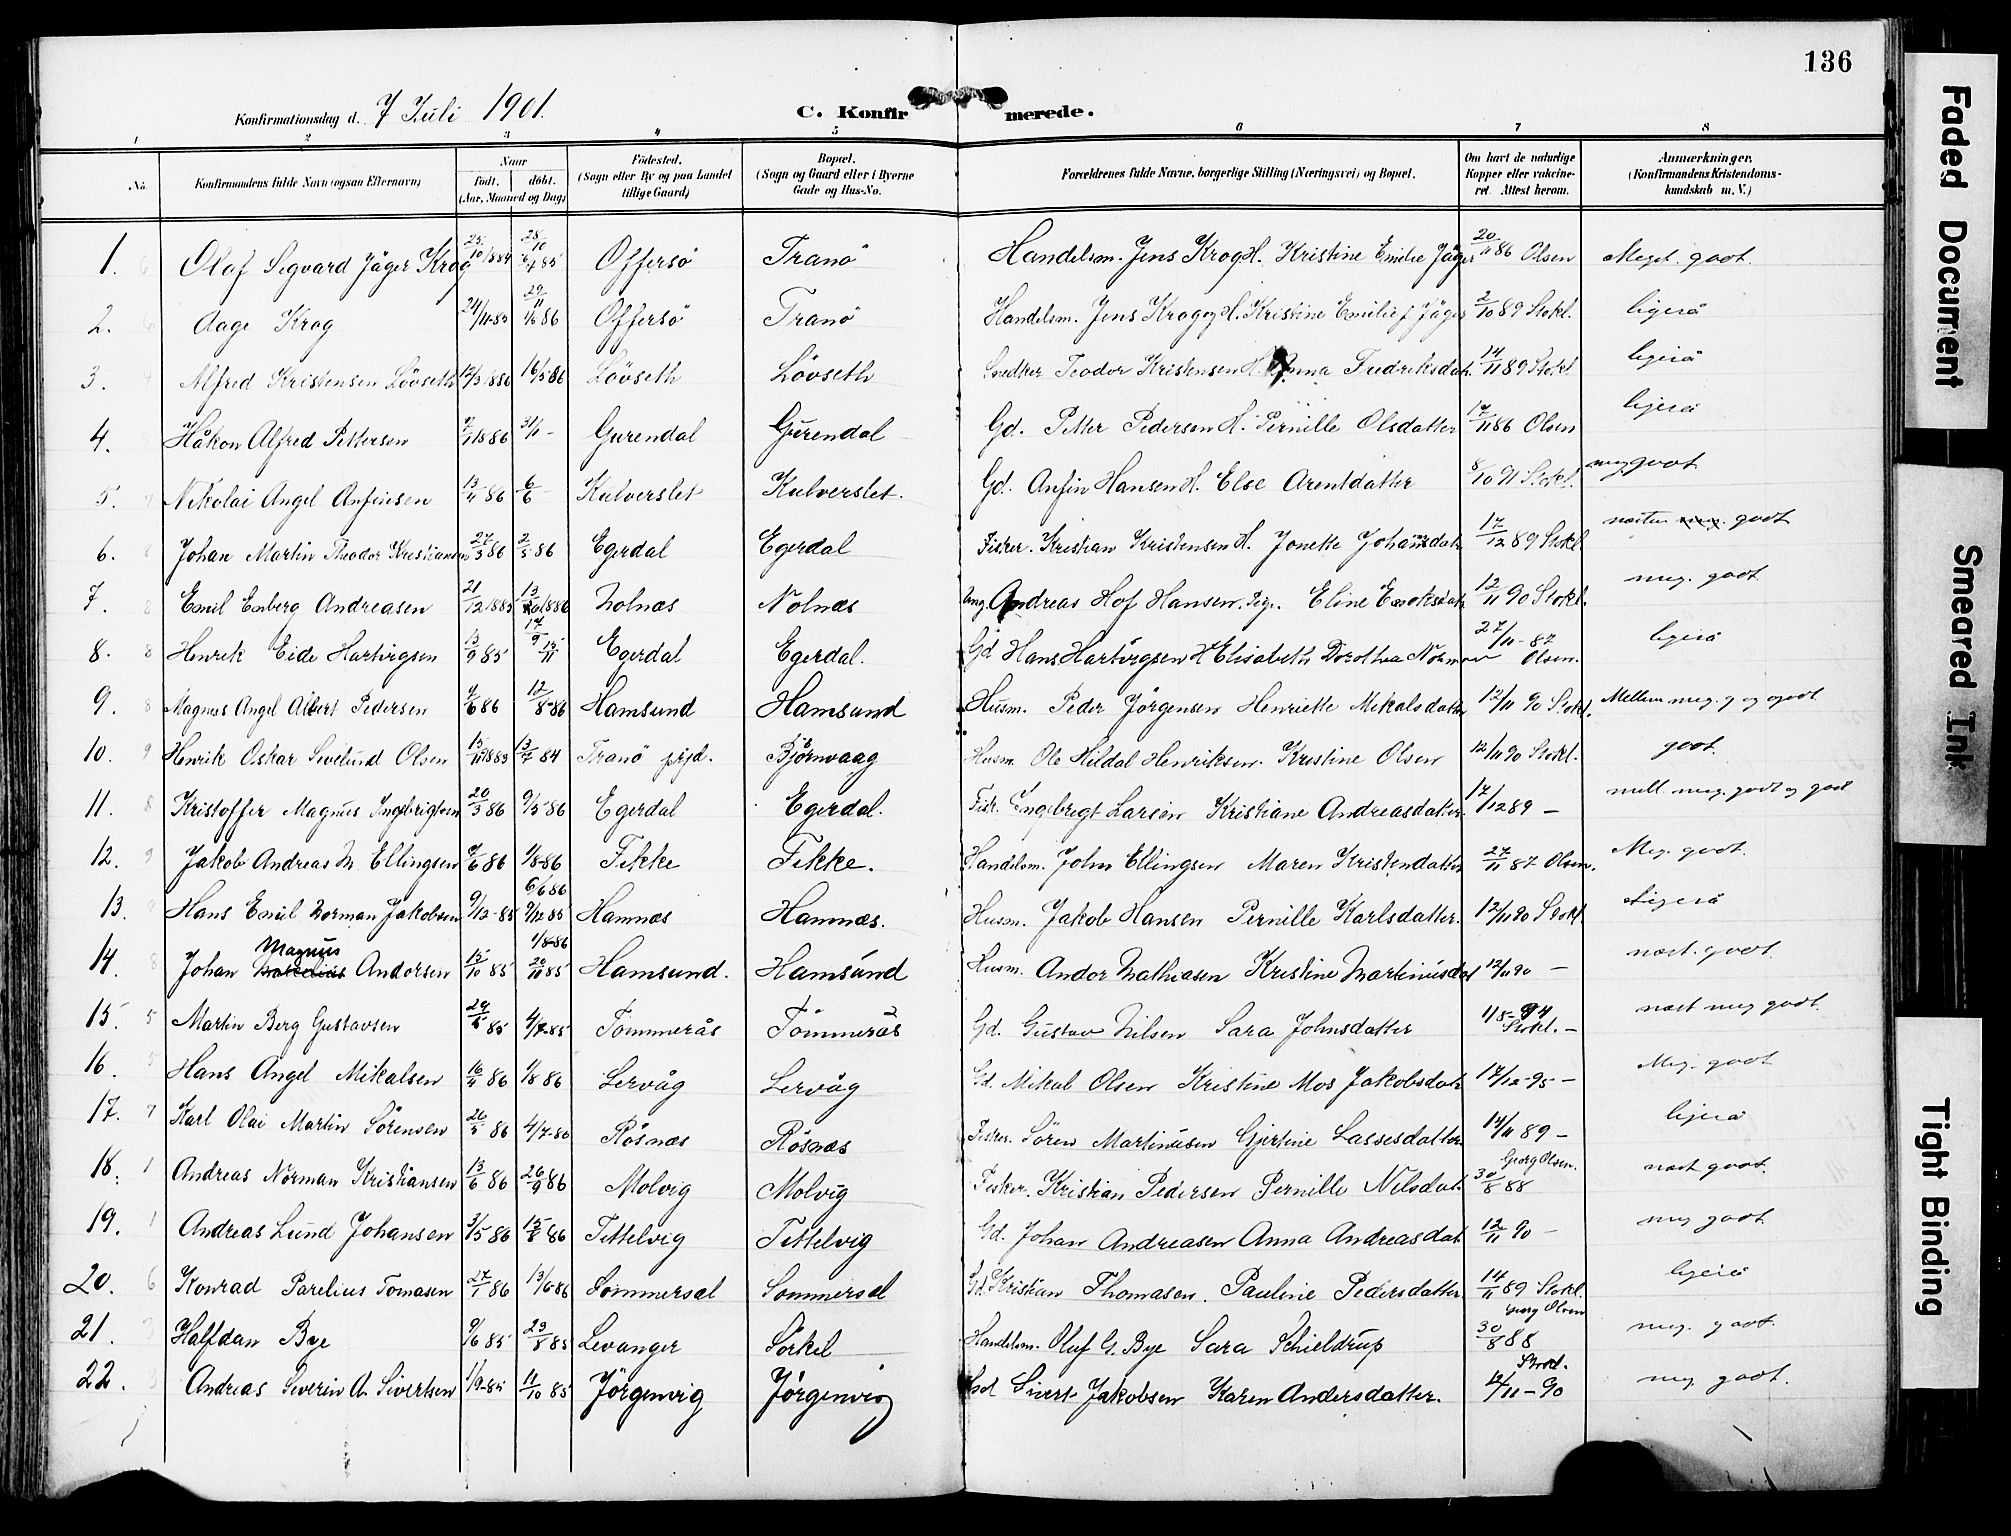 136
Konfirmationsdag d. 7 Juli 1901.
C. Konfirmerede.
1 2 3 4 5 6 7 8
No.
Konfirmandens fulde Navn (ogsaa Efternavn)
Naar
födt. döbt.
(Aar, Maaned og Dag)
Födested.
(Sogn eller By og paa Landet
tillige Gaard)
Bopæl.
(Sogn og Gaard eller i Byerne
Gade og Hus-No.
Forældrenes fulde Navne, borgerlige Stilling (Næringsvei) og Bopæl.
Om havt de naturlige
Kopper eller vakcine-
ret. Attest herom.
Anmærkninger.
(Konfirmandens Kristendoms-
kundskab m. V.)
1. Olaf Segvard Jäger Krog 25/10 1884 28/10 6/4 85 Offersö Tranö Handelsm. Jens Krog H. Kristine Emilie Jäger 20/11 86 Olsen Meget godt.
2. Aage Krog 24/11-85 29/11 86 Offersö Tranö Handelsm. Jens Krog og H. Kristine Emilie f Jäger 2/10 89 Stokl. ligeså
3. Alfred Kristensen Lövseth 12/3 1886 16/5 86 Lövseth Lövseth Snedker Teodor Kristensen H. Anna Fredriksdat. 14/11 89 Stokl ligeså
4. Håkon Alfred Pettersen 7/1 1886 31/1 - Gurendal Gurendal Gd. Petter Pedersen H. Pernille Olsdatter 17/11 86 Olsen ligeså
5. Nikolai Angel Anfinsen 13/4 86 6/6 - Kulverslet Kulverslet. Gd. Anfin Hansen H. Else Arentdatter 8/10 91 Stokl. meg. godt
6. Johan Martin Theodor Kristiansen 27/3 86 2/5 86 Egerdal Egerdal Fisker. Kristian Kristensen H. Jonette Johansdat. 17/12 89 Stokl næsten meg. godt
7. Emil Enberg Andreasen 21/12 1885 1886 Nolnæs Nolnæs Ung. Andreas Hof Hansen. Pige. Eline Enoksdat. 12/11 90 Stokl. meg. godt
8. Henrik Eide Hartvigsen 13/9 85 15/11 Egerdal Egerdal. Gd Hans Hartvigsen H Elisabeth Dorothea Norman 27/11-87 Olsen. ligeså
9. Magnus Angel Albert Pedersen 4/6 86 12/8-86 Hamsund Hamsund Husm. Peder Jörgensen Henriette Mikalsdatter 12/11 90 Stokl. Mellem meg. g og godt
10. Henrik Oskar Sivelund Olsen 15/11 1883 13/7 84 Tranö prjd. Björnvaag Husm. Ole Hildal Henriksen. Kristine Olsen 12/11 90 Stokl. godt
11. Kristoffer Magnus Ingebrigtsen 20/3 86 9/5-86 Egerdal Egerdal. Fisk. Engebregt Larsen Kristiane Andreasdatter. 17/12 89 - mell. meg. godt og godt
12. Jakob Andreas M. Ellingsen 9/6 86 1/8-86 Fikke Fikke. Handelsm. John Ellingsen Maren Kristendatter 27/11 87 Olsen. Meg. godt.
13. Hans Emil Norman Jakobsen 9/12-85 6/6 86 9/12 85 Hamnæs Hamnæs. Husm. Jakob Hansen Pernille Karlsdatter. 12/11 90 Stokl Ligeså
14. Johan Magnus Andorsen 15/10 85 1/8-86 20/11 85 Hamsund. Hamsund Husm. Andor Mathiasen Kristine Martinusdat 12/11 90 - næst. godt.
15. Martin Berg Gustavsen 85 4/7-85 Tömmerås Tömmerås Gd. Gustav Nilsen Sara Johnsdatter Stokl. - næst meg godt.
16. Hans Angel Mikalsen 16/4 86 1/8 86 Lervåg Lervåg Gd. Mikal Olsen Kristine Mos Jakobsdat. 17/12-95- Meg. godt
17. Karl Olai Martin Sörensen 26/5 86 4/7-86 Rösnæs Rösnæs Fisker. Sören Martinusen Gjertine Lassesdatter 14/11 89 - ligeså
18. Andreas Norman Kristiansen 13/6 86 26/9 86 Molvig Molvig Fisker. Kristian Pedersen Pernille Nilsdat. Georg Olsen. 30/8 88 næst godt.
19. Andreas Lund Johansen 3/5 86 15/8 86 Tettelvig Tettelvig Gd. Johan Andreasen Anna Andreasdat. 12/11 90 - meg godt
20. Konrad Parelius Tomasen 27/1 86 13/6-86 Sommersel Sommersel Gd. Kristian Thomasen. Pauline Pedersdatter 14/11 89 Stokl. ligeså
21. Halfdan Bye 9/6 85 23/8 85 Levanger Sörkil Handelsm. Oluf G. Bye Sara Schieldrup Georg Olsen 30/8 88 meg. godt.
22. Andreas Severin A. Sivertsen 1/9-85 11/10 85 Jörgenvig Jörgenvig Gd Sivert Jakobsen Karen Andersdatter. Stokl. 12/11-90 meg godt.
Faded Document
Smeared Ink
Tight Binding